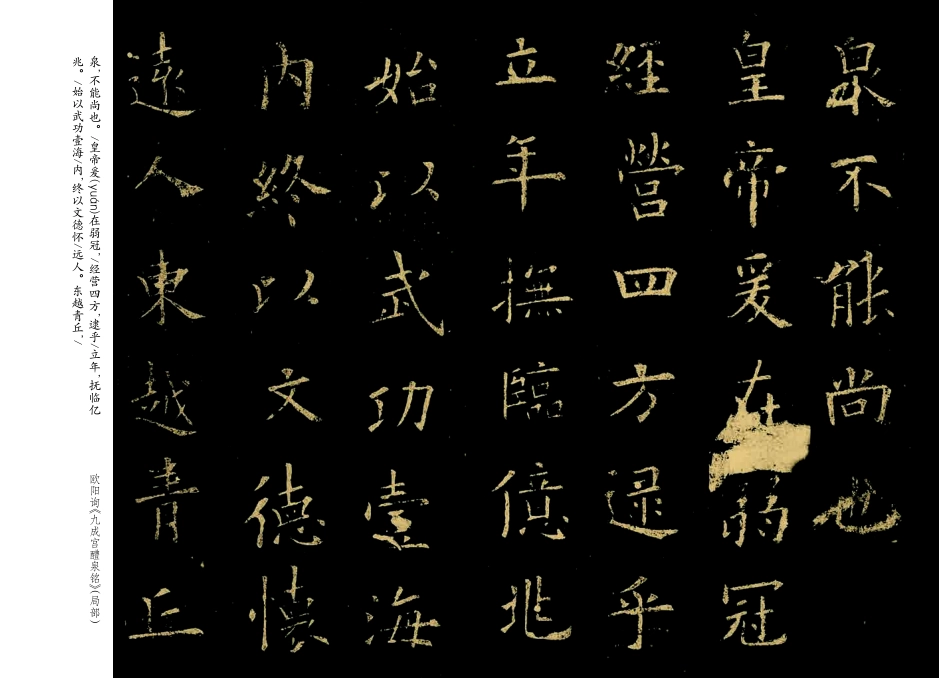 泉不能尚也
皇帝爰在弱冠
經營四方逯乎
立年撫臨億兆
始以武功壹海
内終以文德懷
遠人東越青丘
泉，不能尚也。/皇帝爰(yuán)在弱冠，/经营四方，逮乎/立年，抚临亿
兆。/始以武功壹海/内，终以文德怀/远人。东越青丘，/
欧阳询《九成宫醴泉铭》(局部)